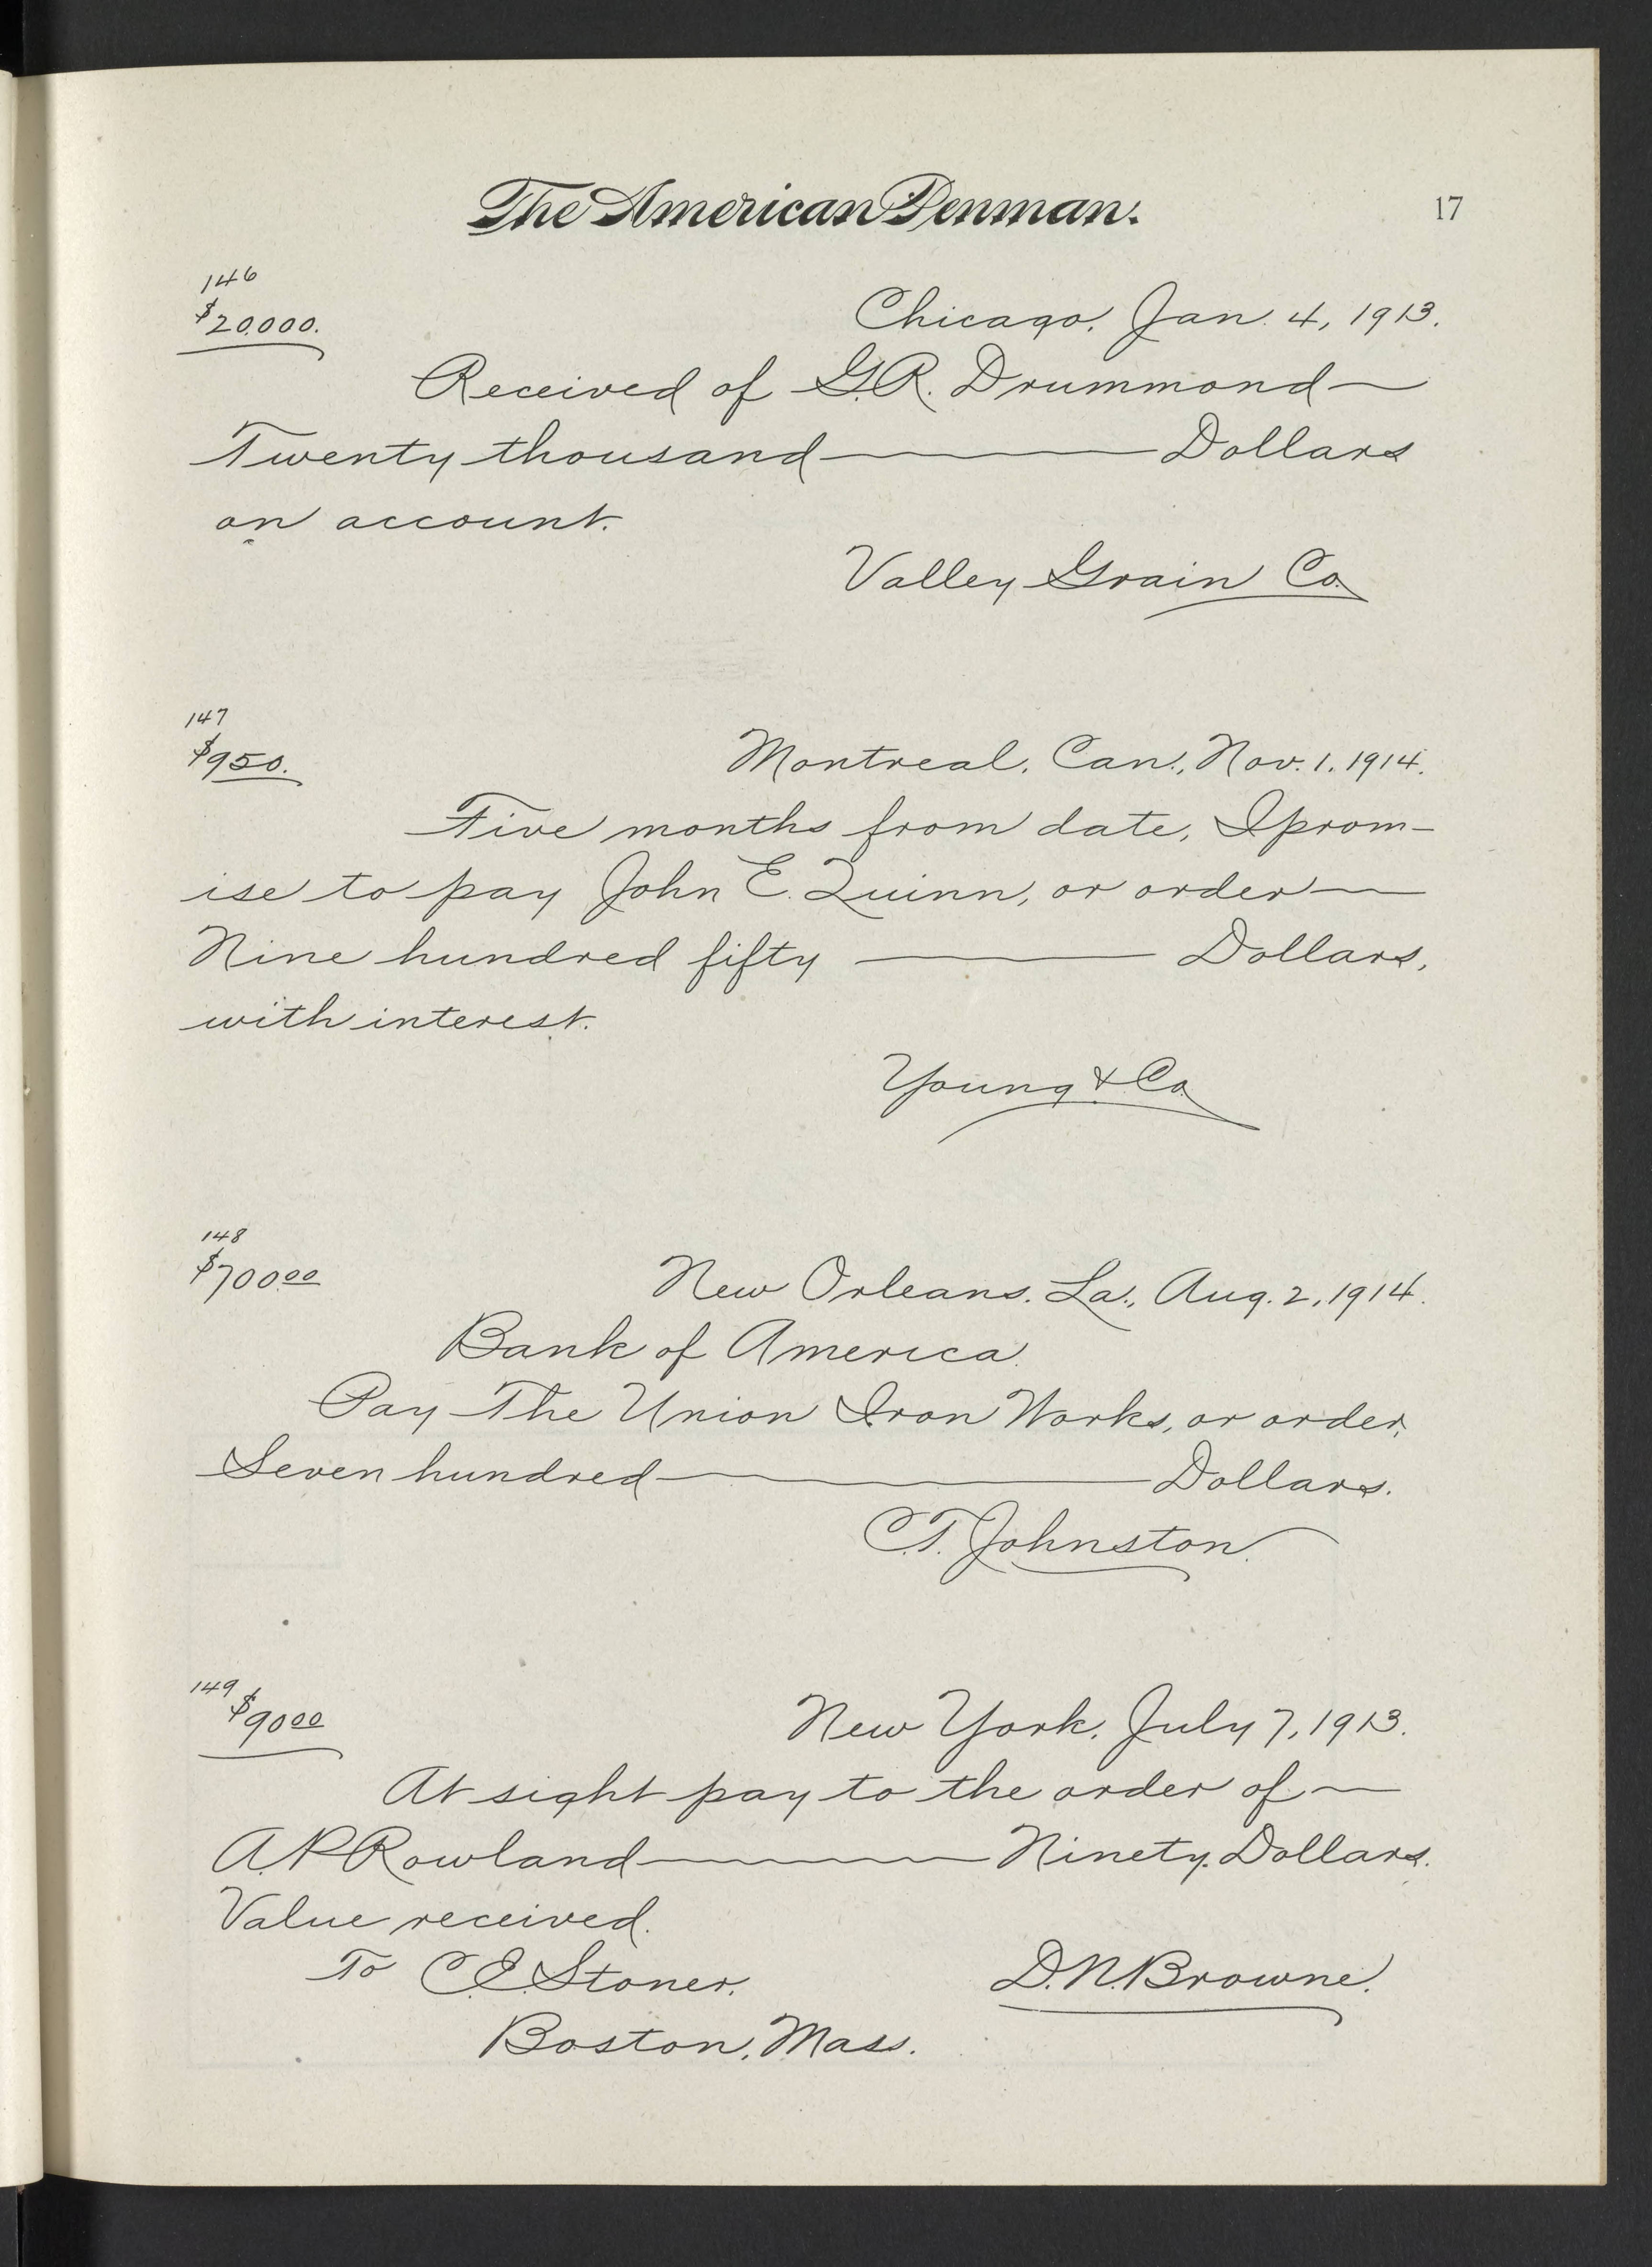 The American Penman.
17
146
$20,000.
Chicago, Jan. 4, 1913.
Received of G.R. Drummond
Twenty thousand Dollars
on account.
Valley Grain Co.
147
$950.
Montreal, Can., Nov. 1, 1914.
Five months from date, I prom-
ise to pay John E. Quinn, or order
Nine hundred fifty Dollars,
with interest.
Young & Co.
148
$700.00
New Orleans, La., Aug. 2, 1914.
Bank of America.
Pay The Union Iron Works, or order,
Seven hundred Dollars.
C.T. Johnston.
149
$90.00
New York, July 7, 1913.
At sight pay to the order of
A.P. Rowland Ninety Dollars.
Value received.
To C.E. Stoner, D.N. Browne.
Boston, Mass.